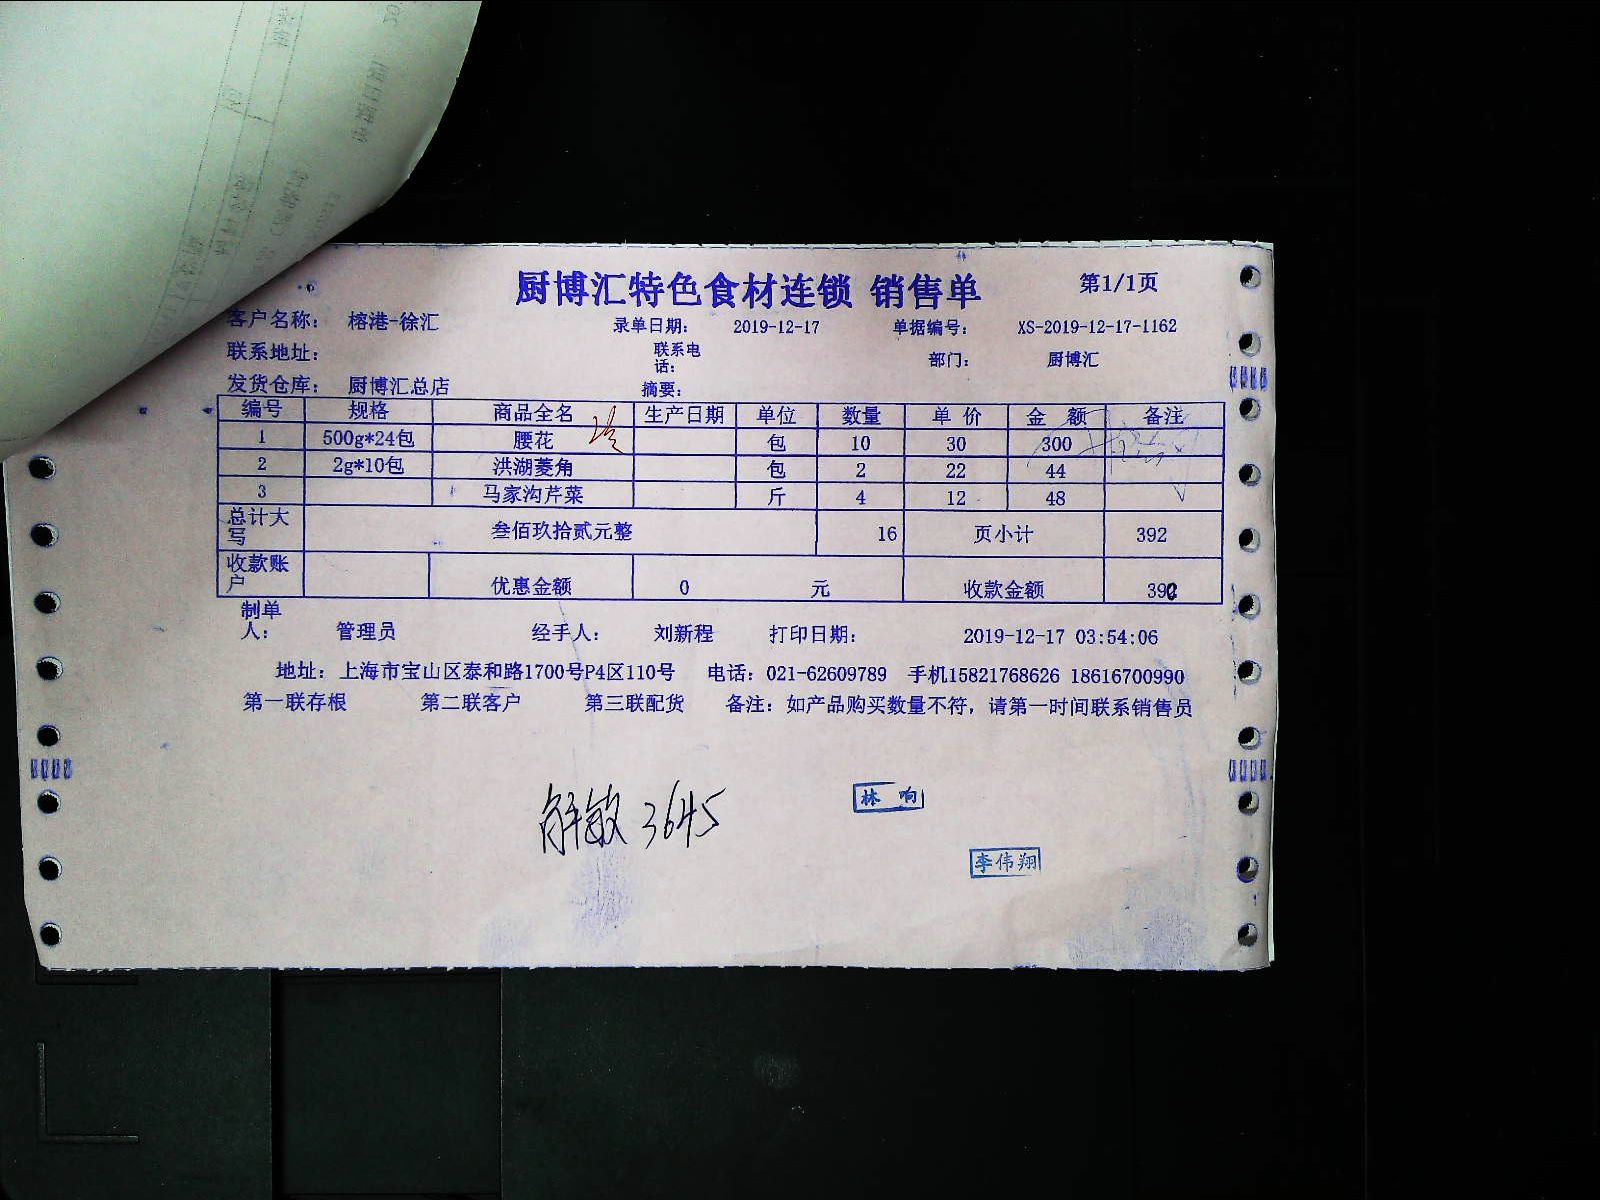 厨博汇特色食材连锁 销售单
第1/1页
客户名称： 榕港-徐汇 录单日期： 2019-12-17 单据编号： XS-2019-12-17-1162
联系地址： 联系电话： 部门： 厨博汇
发货仓库： 厨博汇总店 摘要：
编号 规格 商品全名 生产日期 单位 数量 单 价 金 额 备注
1 500g*24包 腰花 包 10 30 300
2 2g*10包 洪湖菱角 包 2 22 44
3 马家沟芹菜 斤 4 12 48
总计大写 叁佰玖拾贰元整 16 页小计 392
收款账户 优惠金额 0 元 收款金额 392
制单人： 管理员 经手人： 刘新程 打印日期： 2019-12-17 03:54:06
地址：上海市宝山区泰和路1700号P4区110号 电话：021-62609789 手机15821768626 18616700990
第一联存根 第二联客户 第三联配货 备注：如产品购买数量不符，请第一时间联系销售员
解敏 3645
林 响
李伟翔